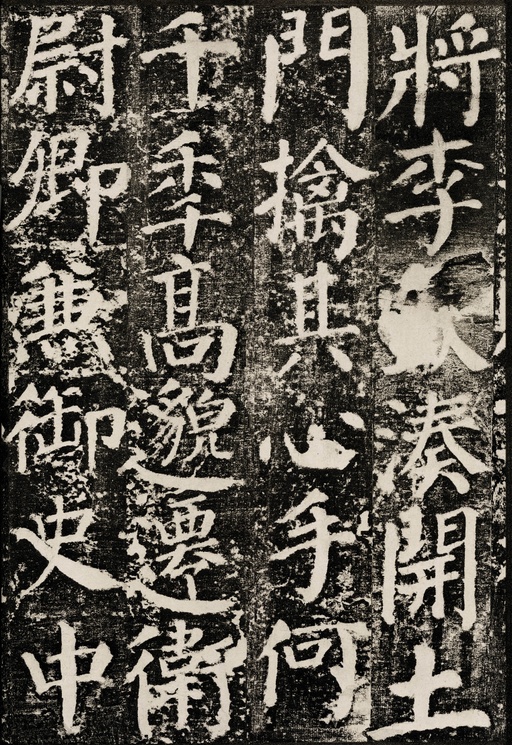 將李湊開土
門擒其心手何
千秊高邈遷衛
尉卿兼御史中